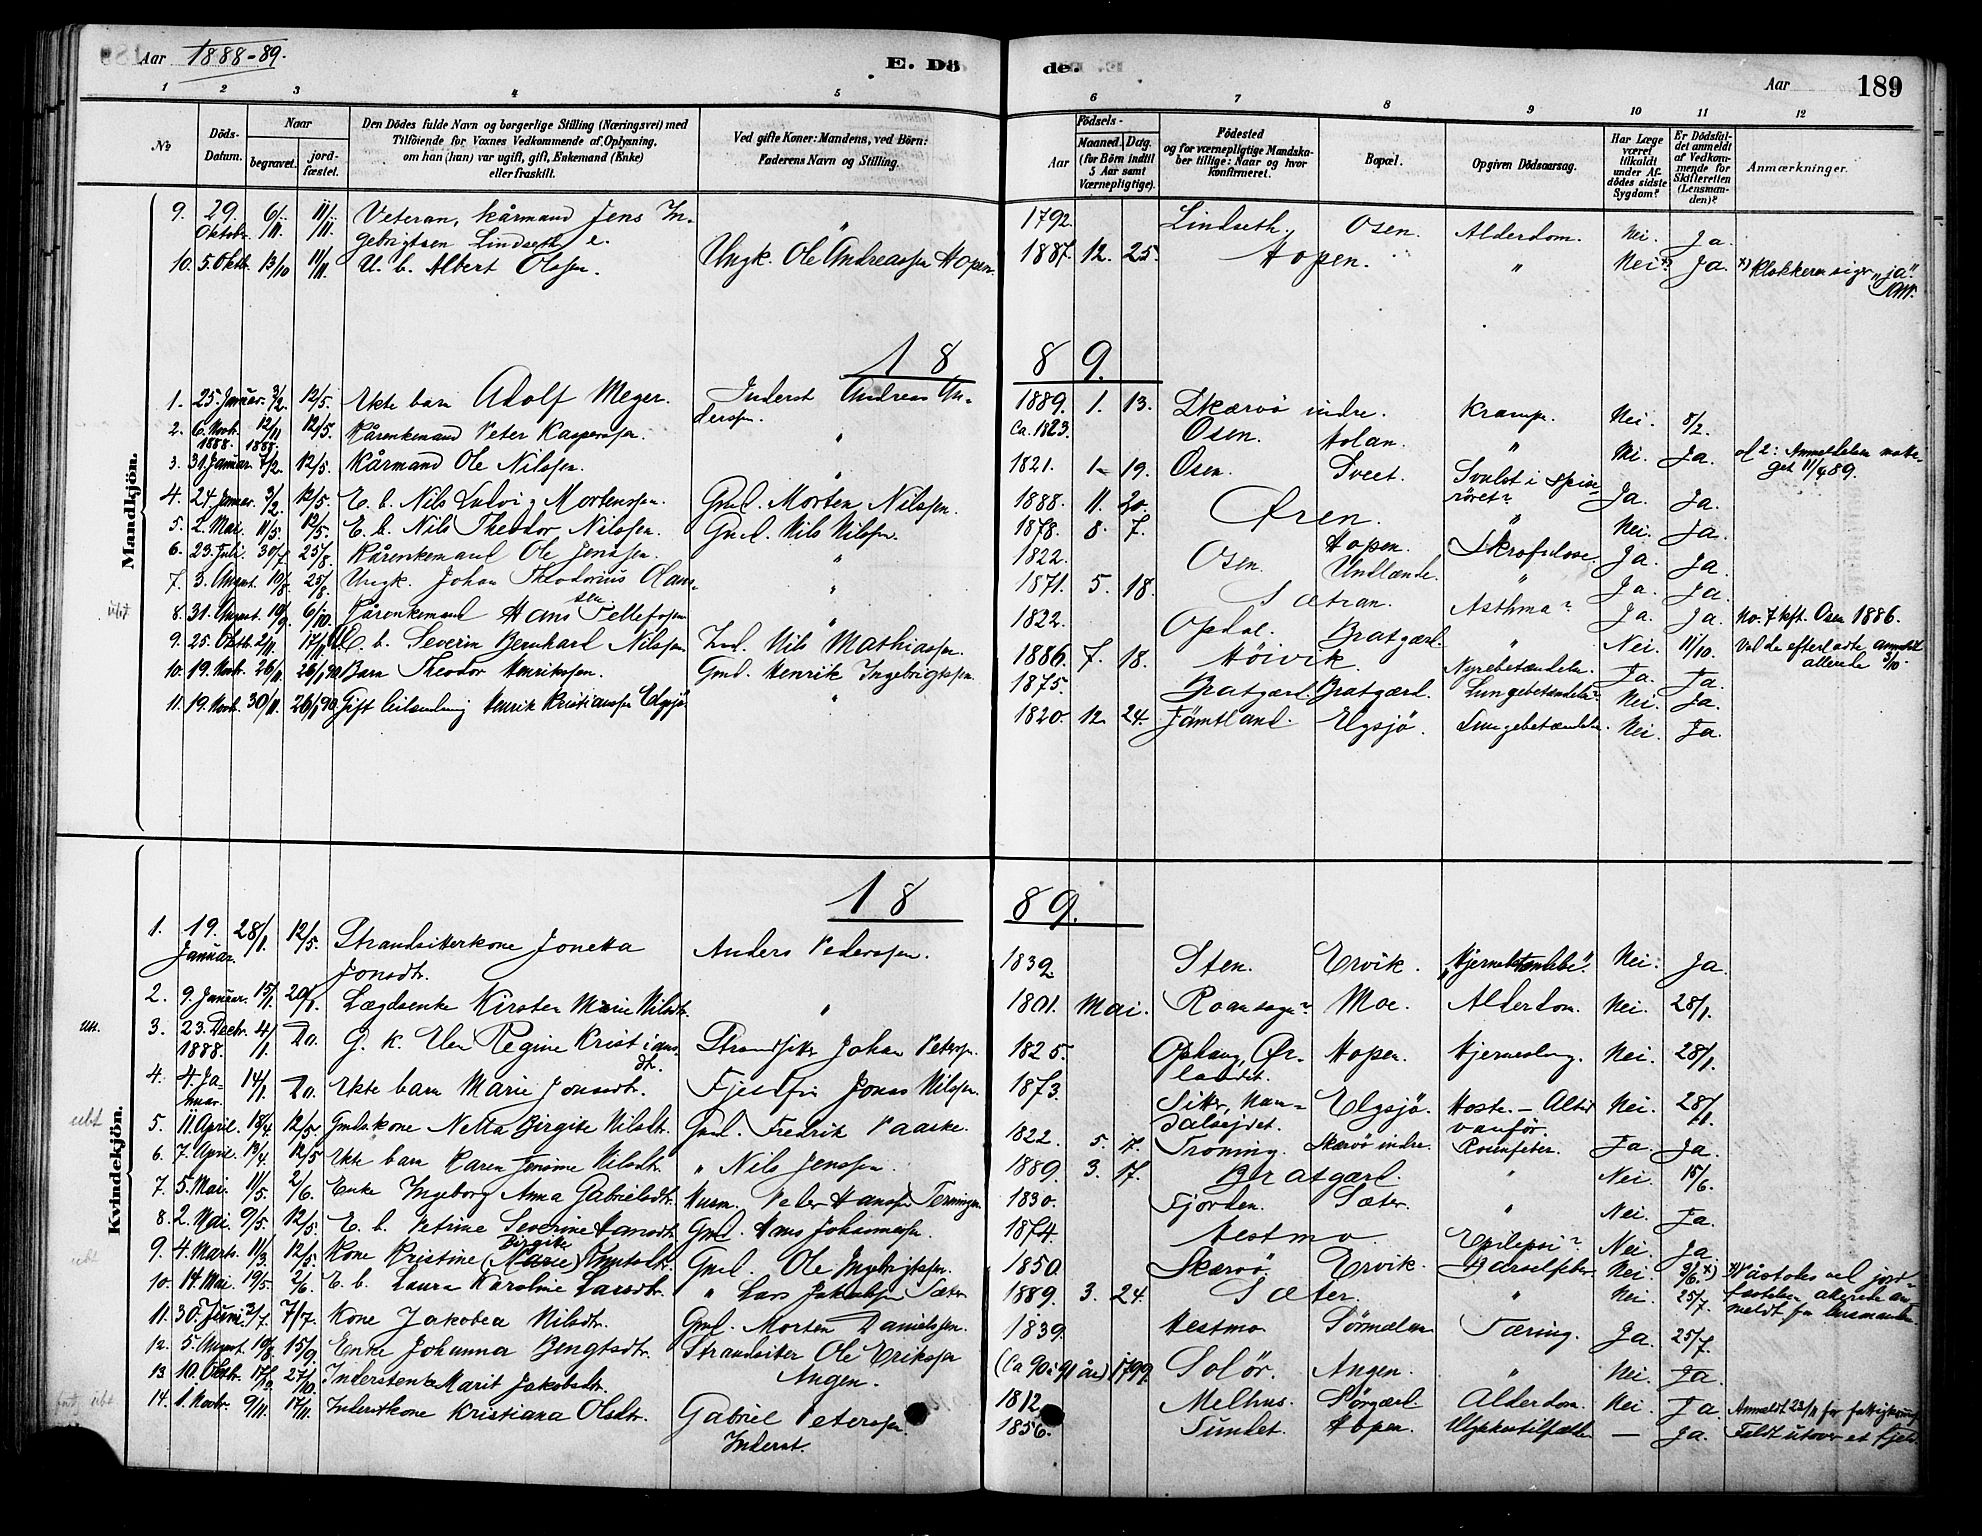 Aar 1888-89.
E. Dö de.
Aar 189
1 2 3 4 5 6 7 8 9 10 11 12
No
Döds-Datum.
Naar
begravet.
jordfæstet.
Den Dödes fulde Navn og borgerlige Stilling (Næringsvei) med
Tilföiende for Voxnes Vedkommende af Oplysning,
om han (hun) var ugift, gift, Enkemand (Enke)
eller fraskilt.
Ved gifte Koner: Mandens, ved Börn:
Faderens Navn og Stilling.
Födsels-
Aar
Maaned. Dag.
(for Börn indtil
5 Aar samt
Værnepligtige).
Födested
og for værnepligtige Mandska-
ber tillige: Naar og hvor
konfirmeret.
Bopæl.
Opgiven Dödsaarsag.
Har Læge
været
tilkaldt
under Af-
dödes sidste
Sygdom?
Er Dödsfal-
det anmeldt
af Vedkom-
mende for
Skifteretten
(Lensman-
den)?
Anmærkninger.
Mandkjön.
9. 29. Oktobr. 6/11 11/11 Veteran, kårmand Jens In-
gebrigtsen Lindseth e. " 1792. Lindseth. Osen. Alderdom. Nei. Ja.
10. 5. Oktb. 13/10 11/11 U. b. Albert Olssen. Ungk. Ole Andreassen Hopen. 1887. 12. 25. Hopen. " Nei x) Ja. x) Klokkeren siger "ja".
1889.
1. 25. Januar. 3/2. 12/5. Ekte barn Adolf Meyer. Inderst Andreas An-
dersen. 1889. 1. 13. Skjærvö indre. Krampe. Nei. 8/2.
2. 6. Novb. 1888. 12/11 1888. 12/5. Kårenkemand Peter Kasperssen. " Ca. 1823. Osen. Holan. " Nei. Ja.
3. 31. Januar. 7/2. 12/5. Kårmand Ole Nilssen. " 1821. 1 19. Osen. Sveet. Svulst i spise-
röret? Ja. Ja.
4. 24. Januar. 3/2. 12/5. E. b. Nils Ludvig Mortenssen. Gmd. Morten Nilssen. 1888. 11. 20. Øren. "
5. 2. Mai. 11/5. 12/5. E. b. Nils Theodor Nilssen. Gmd. Nils Nilssen. 1878. 8. 7. Hopen. Skrofulose. Nei. Ja.
6. 23. Juli. 30/7. 25/8. Kårenkemand Ole Jenssen. " 1822. Osen. Ja. Ja.
7. 3. August. 10/8. 25/8. Ungk. Johan Theodorius Hans-
sen. " 1871. 5. 18. Sætran. " Ja. Ja. No. 7 kft. Osen 1886.
8. 31. August. 10/9. 6/10. Kårenkemand Hans Tellefssen. " 1822. Opdal. Bratgærd. Asthma? Ja. Ja.
9. 25. Oktb. 2/11. 17/11 E. b. Severin Bernhard Nilssen. Ind. Nils Mathiassen. 1886. 7. 18. Höivik. " Nei. 11/10.
10. 19. Novb. 26/11. 26/1 90. Barn Theodor Henrikssen. Gmd. Henrik Ingebrigtssen. 1875. Bratgærd. Bratgærd. Nyrebetændelse. Ja. Ja.
11. 19. Novb. 30/11. 26/1 90. Gift leilending Henrik Kristianssen Elgsjö. " 1820. 12. 24. Jämtland. Elgsjö. Lungebetændelse. Nei. Ja.
Kvindekjön.
1889.
1. 19. Januar. 28/1. 12/5. Strandsitterkone Jonetta
Jonsdtr. Anders Pederssen. 1839. Sten. Ervik. "Hjernebetændelse". Nei. Ja.
2. 9. Januar. 15/1. 20/1. Lægdsenke Kirsten Marie Nilsdtr. " 1801. Mai. Roansogn? Moe. Alderdom. Nei. 28/1.
3. 23. Decbr. 1888. 4/1. Do. G. k. Elen Regine Kristians-
dtr. Strandsitter Johan Peterssen. 1825. Ophaug, Ør-
landet. Hopen. Hjerneslag. Nei. 28/1.
4. 4. Ja-
nuar. 14/1. Do. Ekte barn Marie Jonsdtr. Jonas Nilssen. 1873. Elgsjö. Hoste. – Altid
vanför. Nei. 28/1.
5. 11. April. 18/4. 12/5. Gmdskone Netta Birgitte Nilsdtr. Gmd. Fredrik Paaske. 1822. 5. 17. Troning. Skærvö indre. Ja. Ja.
6. 7. April. 13/4. 12/5. Ekte barn Karen Jensine Nilsdtr. " Nils Jenssen. 1889. 3. 17. Bratgærd. " Nei. 15/6.
7. 5. Mai. 11/5. 2/6. Enke Ingeborg Anna Gabrielsdtr. Husm. Peder Hanssen Terningen. 1830. Fjorden. Sæter. " Nei. Ja.
8. 2. Mai. 9/5. 12/5. E. b. Petrine Severine Hansdtr. Gmd. Hans Johannessen. 1874. Hestmo. Epilepsi? Nei. Ja.
9. 4. Marts. 11/3. 12/5. Kone Kristine (Marie) Birgitte Knutsdtr. Gmd. Ole Ingebrigtssen. 1850. Skærvö. Ervik. Barselfeber. Nei. 3/6. x)
10. 14. Mai. 19/5. 2/6. E. b. Laura Karoline Larsdtr. " Lars Jakobssen Sæter. 1889. 3. 24. Sæter. " Nei. 25/7.
11. 30. Juni. 7/7. 7/7. Kone Jakobea Nilsdtr. Gmd. Morten Danielssen. 1839. Hestmo. Sörmælen. Tæring. Ja. 25/7.
12. 5. August. 10/8. 15/9. Enke Johanna Bengtsdtr. Strandsitter Ole Erikssen
Angen. (Ca 90 à 91 år) 1799. Solör. Angen. " Nei. Ja.
13. 10. Oktbr. 17/10. 27/10. Inderstenke Marit Jakobsdtr. 1812. Melhus. Sörgærd. Alderdom. Nei. Ja. Anmeldt 23/11 for fattigkom.
14. 1. Novbr. 9/11. 17/11. Inderstkone Kristiana Olsdtr. Gabriel Peterssen.
Inderst. 1856. Sundet. Hopen. Ulykkestilfælde. – Ja. Faldt utover et fjeld.